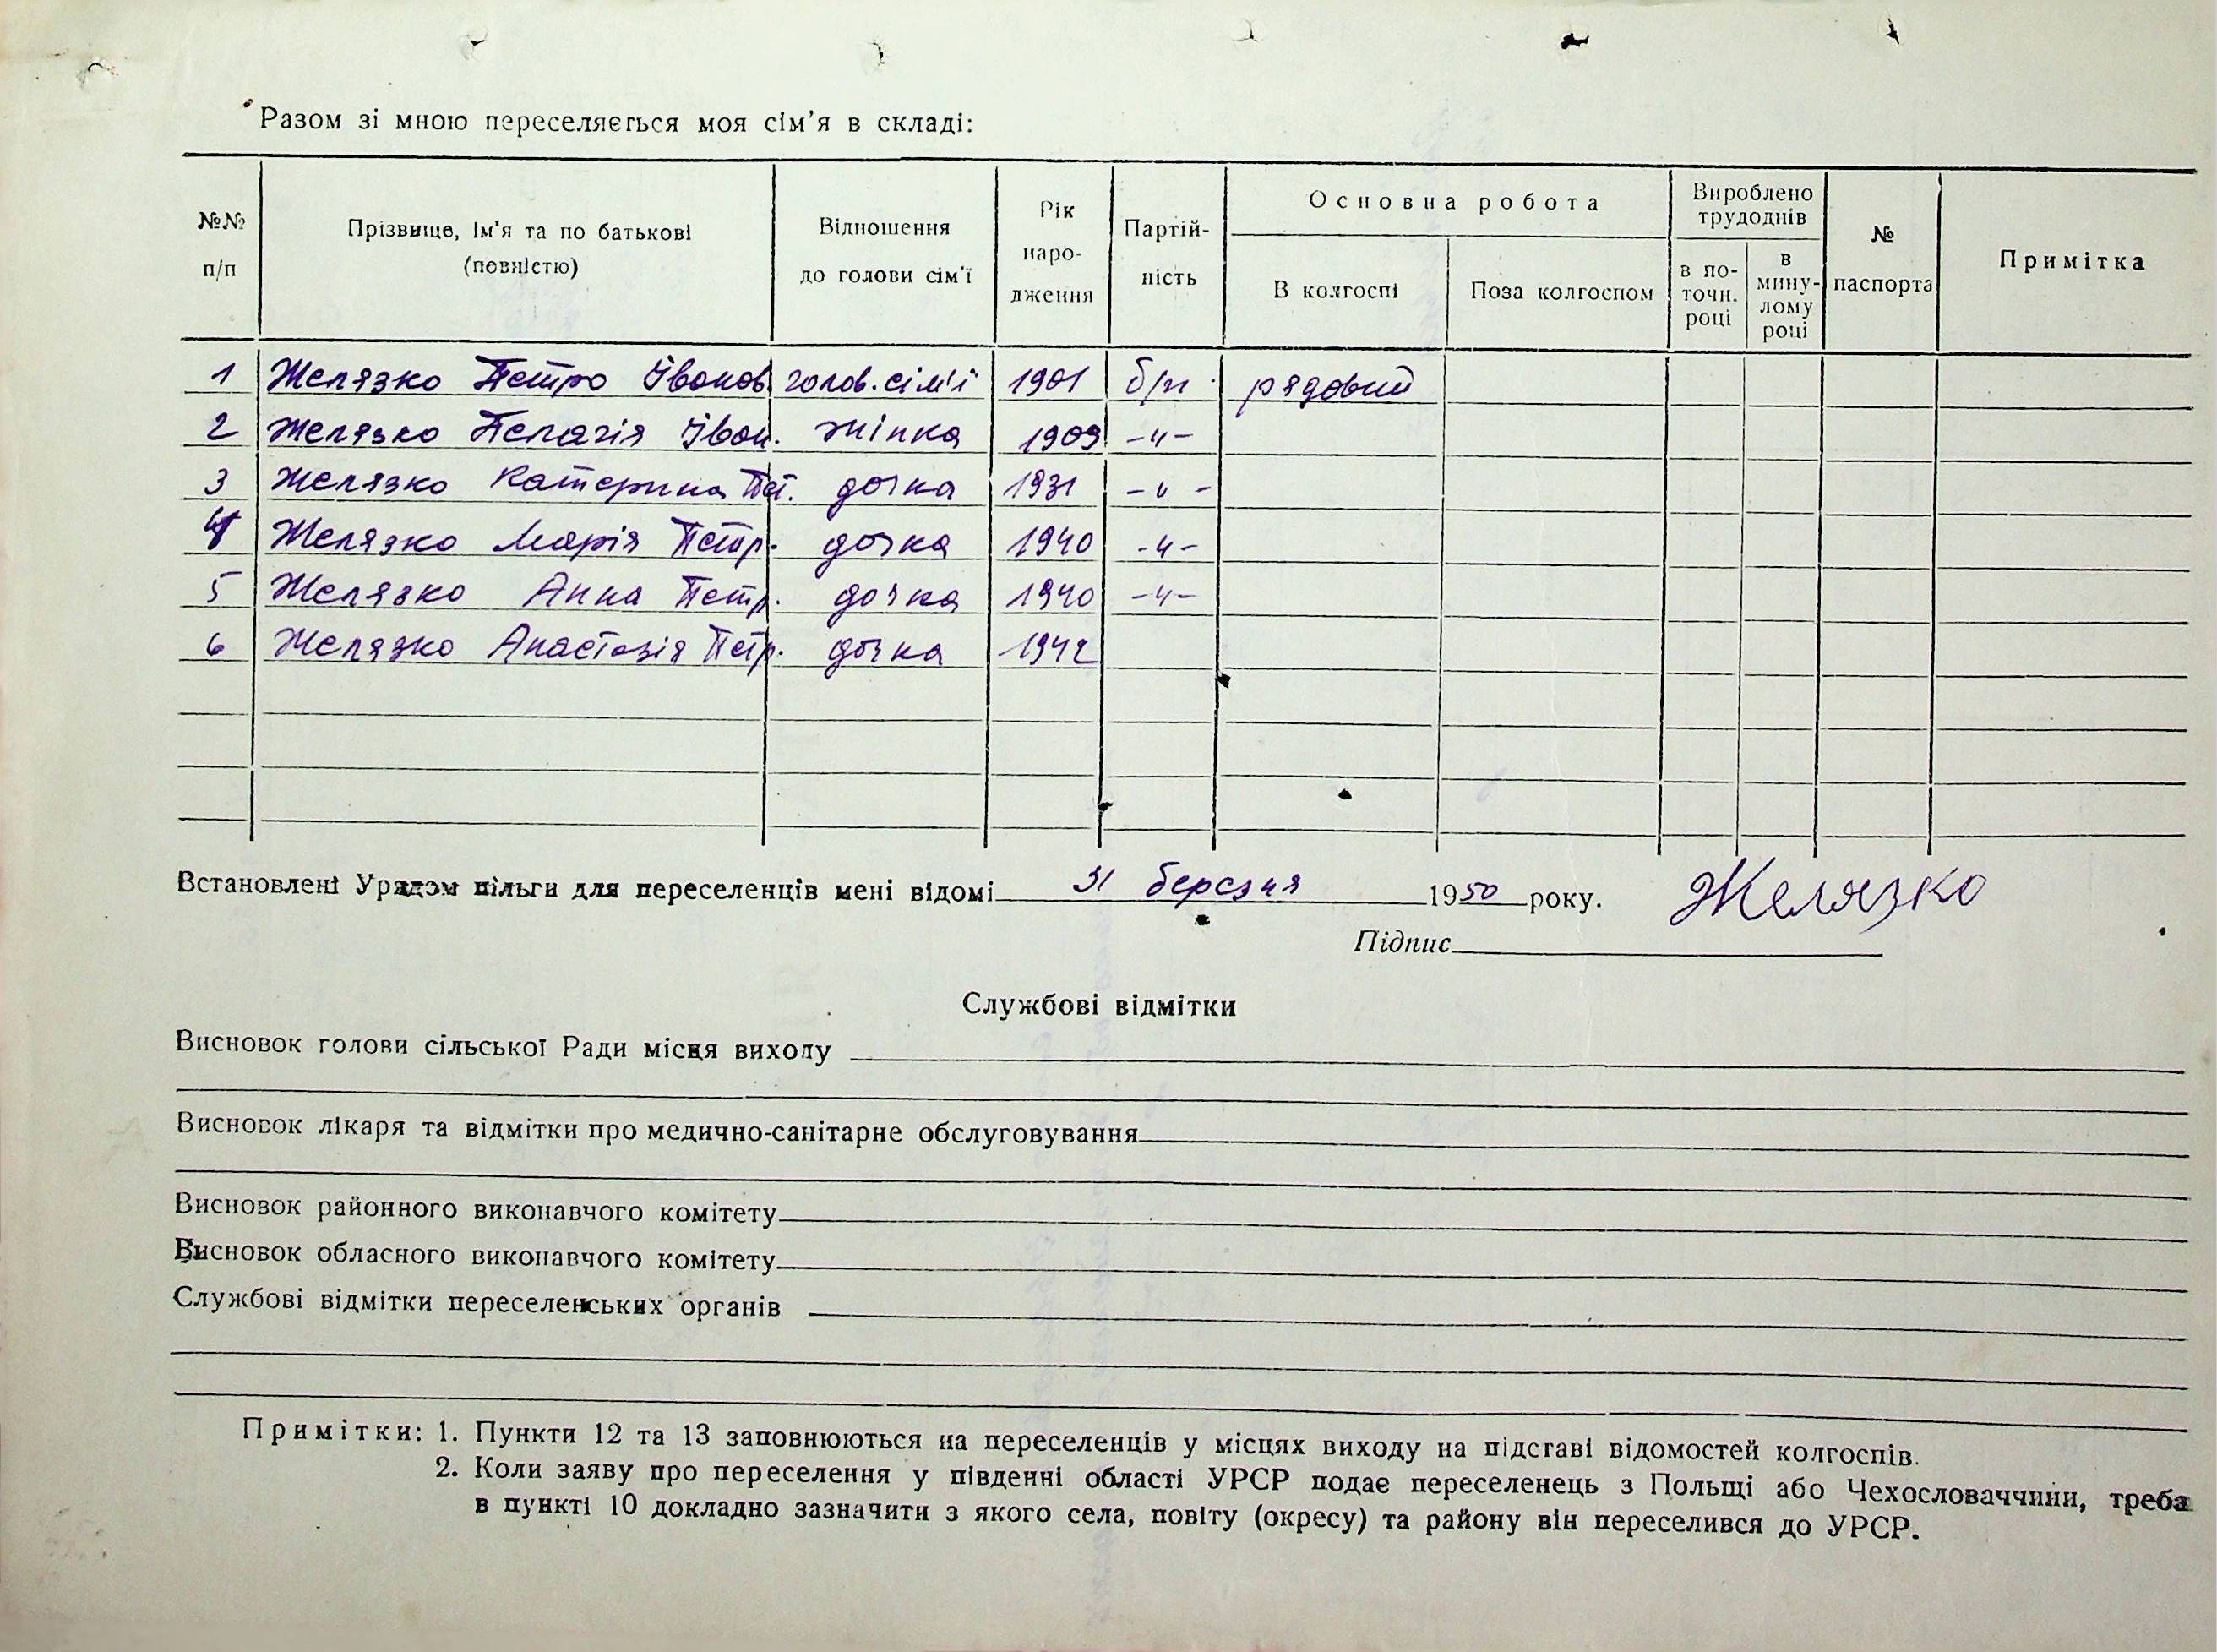 Разом зі мною переселяється моя сім'я в складі:
№№ п/п | Прізвище, ім'я та по батькові (повністю) | Відношення до голови сім'ї | Рік народження | Партійність | Основна робота | Вироблено трудоднів | № паспорта | Примітка
В колгоспі | Поза колгоспом | в поточн. році | в минулому році
1 Желязко Петро Іванов голов. сім'ї 1901 б/п рядовий
2 Желязко Пелагія Іван. жінка 1909 -"-
3 Желязко Катерина Пет. дочка 1931 -"-
4 Желязко Марія Петр. дочка 1940 -"-
5 Желязко Анна Петр. дочка 1940 -"-
6 Желязко Анастазія Петр. дочка 1942
Встановлені Урядом пільги для переселенців мені відомі 31 березня 1950 року. Желязко
Підпис
Службові відмітки
Висновок голови сільської Ради місця виходу
Висновок лікаря та відмітки про медично-санітарне обслуговування
Висновок районного виконавчого комітету
Висновок обласного виконавчого комітету
Службові відмітки переселенських органів
Примітки: 1. Пункти 12 та 13 заповнюються на переселенців у місцях виходу на підставі відомостей колгоспів.
2. Коли заяву про переселення у південні області УРСР подає переселенець з Польщі або Чехословаччини, треба
в пункті 10 докладно зазначити з якого села, повіту (окресу) та району він переселився до УРСР.